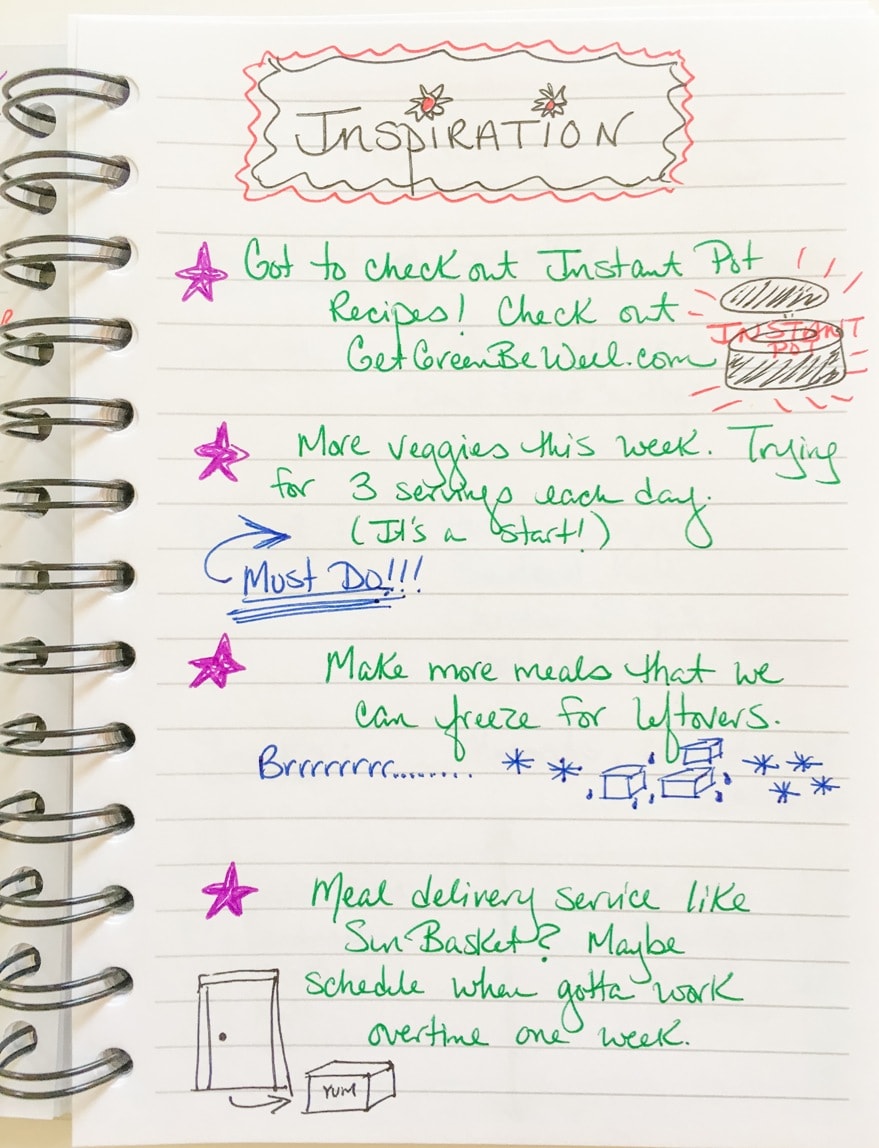 INSPIRATION
Got to check out Instant Pot
Recipes! Check out
INSTANT
POT
GetGreenBeWell.com
More veggies this week. Trying
for 3 servings each day.
(It's a start!)
Must Do!!!
Make more meals that we
can freeze for leftovers.
Brrrrrrrr........
Meal delivery service like
Sun Basket? Maybe
schedule when gotta work
overtime one week.
YUM